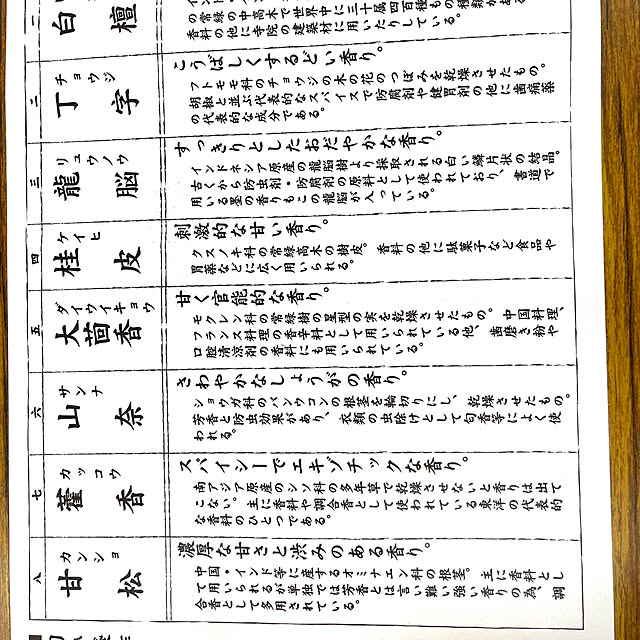 白檀
の常緑の中高木で世界中に三十属四百種もの種類がある
香料の他に寺院の建築材に用いたりしている。
二
チョウジ
丁字
こうばしくするどい香り。
フトモモ科のチョウジの木の花のつぼみを乾燥させたもの。
胡椒と並ぶ代表的なスパイスで防腐剤や健胃剤の他に歯痛薬
の代表的な成分である。
三
リュウノウ
龍脳
すっきりとしたおだやかな香り。
インドネシア原産の龍脳樹より採取される白い鱗片状の結晶。
古くから防虫剤・防腐剤の原料として使われており、書道で
用いる墨の香りもこの龍脳が入っている。
四
ケイヒ
桂皮
刺激的な甘い香り。
クスノキ科の常緑高木の樹皮。香料の他に駄菓子など食品や
胃薬などに広く用いられる。
五
ダイウイキョウ
大茴香
甘く官能的な香り。
モクレン科の常緑樹の星型の実を乾燥させたもの。中国料理、
フランス料理の香辛料として用いられている他、歯磨き粉や
口腔清涼剤の香料にも用いられている。
六
サンナ
山奈
さわやかなしょうがの香り。
ショウガ科のバンウコンの根茎を輪切りにし、乾燥させたもの。
芳香と防虫効果があり、衣類の虫除けとして匂香等によく使
われる。
七
カッコウ
藿香
スパイシーでエキゾチックな香り。
南アジア原産のシソ科の多年草で乾燥させないと香りは出て
こない。主に香料や調合香として使われている東洋の代表的
な香料のひとつである。
八
カンショ
甘松
濃厚な甘さと渋みのある香り。
中国・インド等に産するオミナエシ科の根茎。主に香料とし
て用いられるが単独では芳香とは言い難い強い香りの為、調
合香として多用されている。